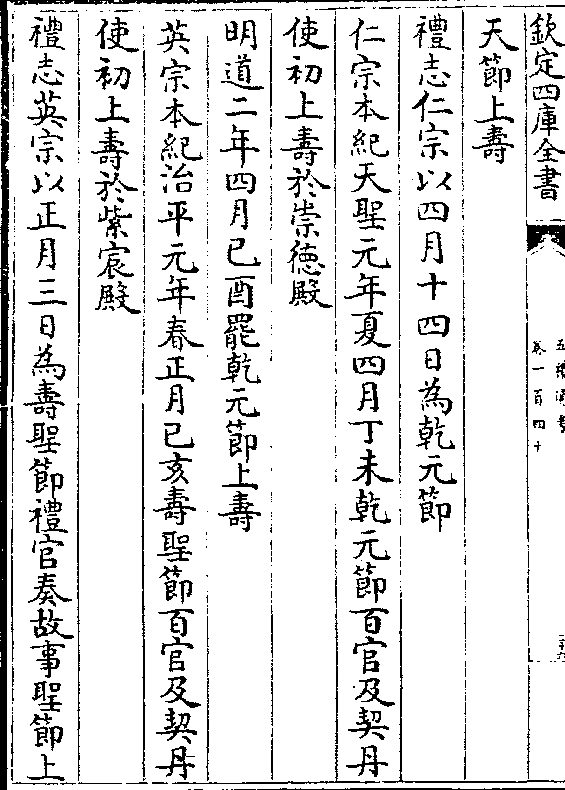 欽定四庫全書
五禮通考
卷一百四十
天節上壽
禮志仁宗以四月十四日為乾元節
仁宗本紀天聖元年夏四月丁未乾元節百官及契丹
使初上壽於崇徳殿
明道二年四月已酉罷乾元節上壽
英宗本紀治平元年春正月已亥壽聖節百官及契丹
使初上壽於紫宸殿
禮志英宗以正月三日為壽聖節禮官奏故事聖節上